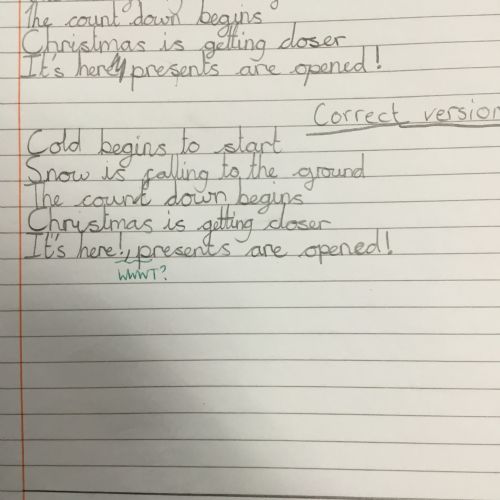 The count down begins
Christmas is getting closer
It's here presents are opened!
Correct version
Cold begins to start
Snow is falling to the ground
The count down begins
Christmas is getting closer
It's here!, presents are opened!
WWWT?